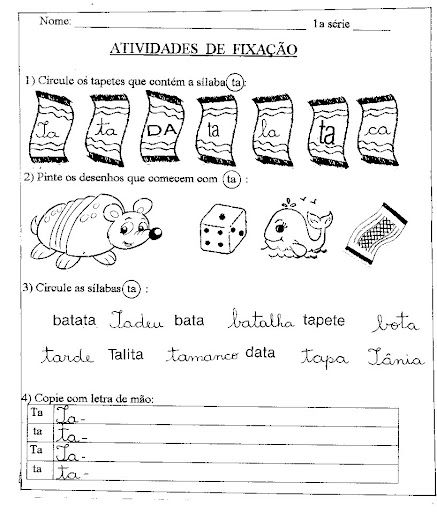 Nome: ____________________ 1a série ________
ATIVIDADES DE FIXAÇÃO
1) Circule os tapetes que contém a sílaba ta:
Ta ta DA ta la ta ca
2) Pinte os desenhos que comecem com ta :
3) Circule as sílabas ta :
batata Tadeu bata batalha tapete bota
tarde Talita tamanco data tapa Tânia
4) Copie com letra de mão:
Ta Ta -
ta ta -
Ta Ta -
ta ta -